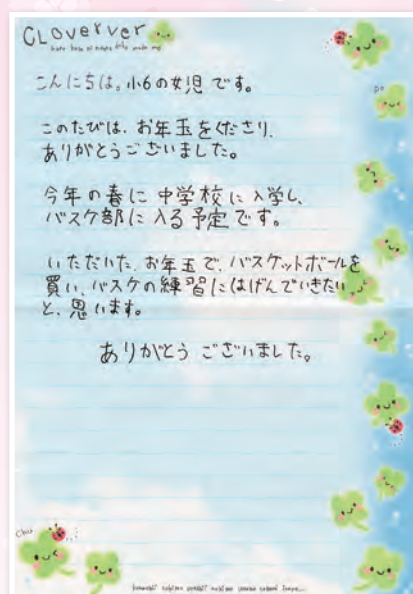 CLoverver
こんにちは。小6の女児です。
このたびは、お年玉をくださり、
ありがとうございました。
今年の春に中学校に入学し、
バスケ部に入る予定です。
いただいた、お年玉で、バスケットボールを
買い、バスケの練習にはげんでいきたい
と、思います。
ありがとうございました。
Chu